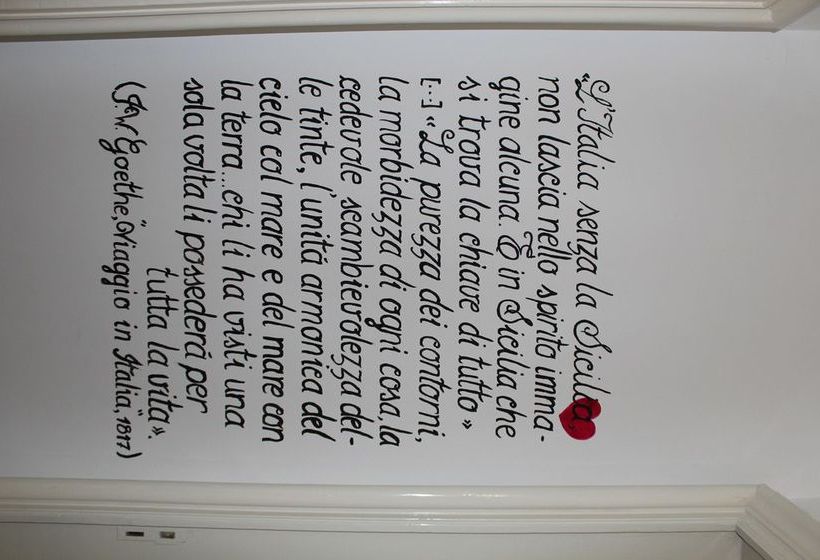 «L'Italia senza la Sicilia,
non lascia nello spirito imma-
gine alcuna. È in Sicilia che
si trova la chiave di tutto»
[...] «La purezza dei contorni,
la morbidezza di ogni cosa, la
cedevole scambievolezza del-
le tinte, l'unitá armonica del
cielo col mare e del mare con
la terra...chi li ha visti una
sola volta li possederá per
tutta la vita».
(J.W. Goethe, "Viaggio in Italia", 1817)